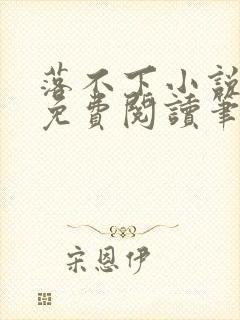 落不下小說
免費閱讀筆
宋恩伊